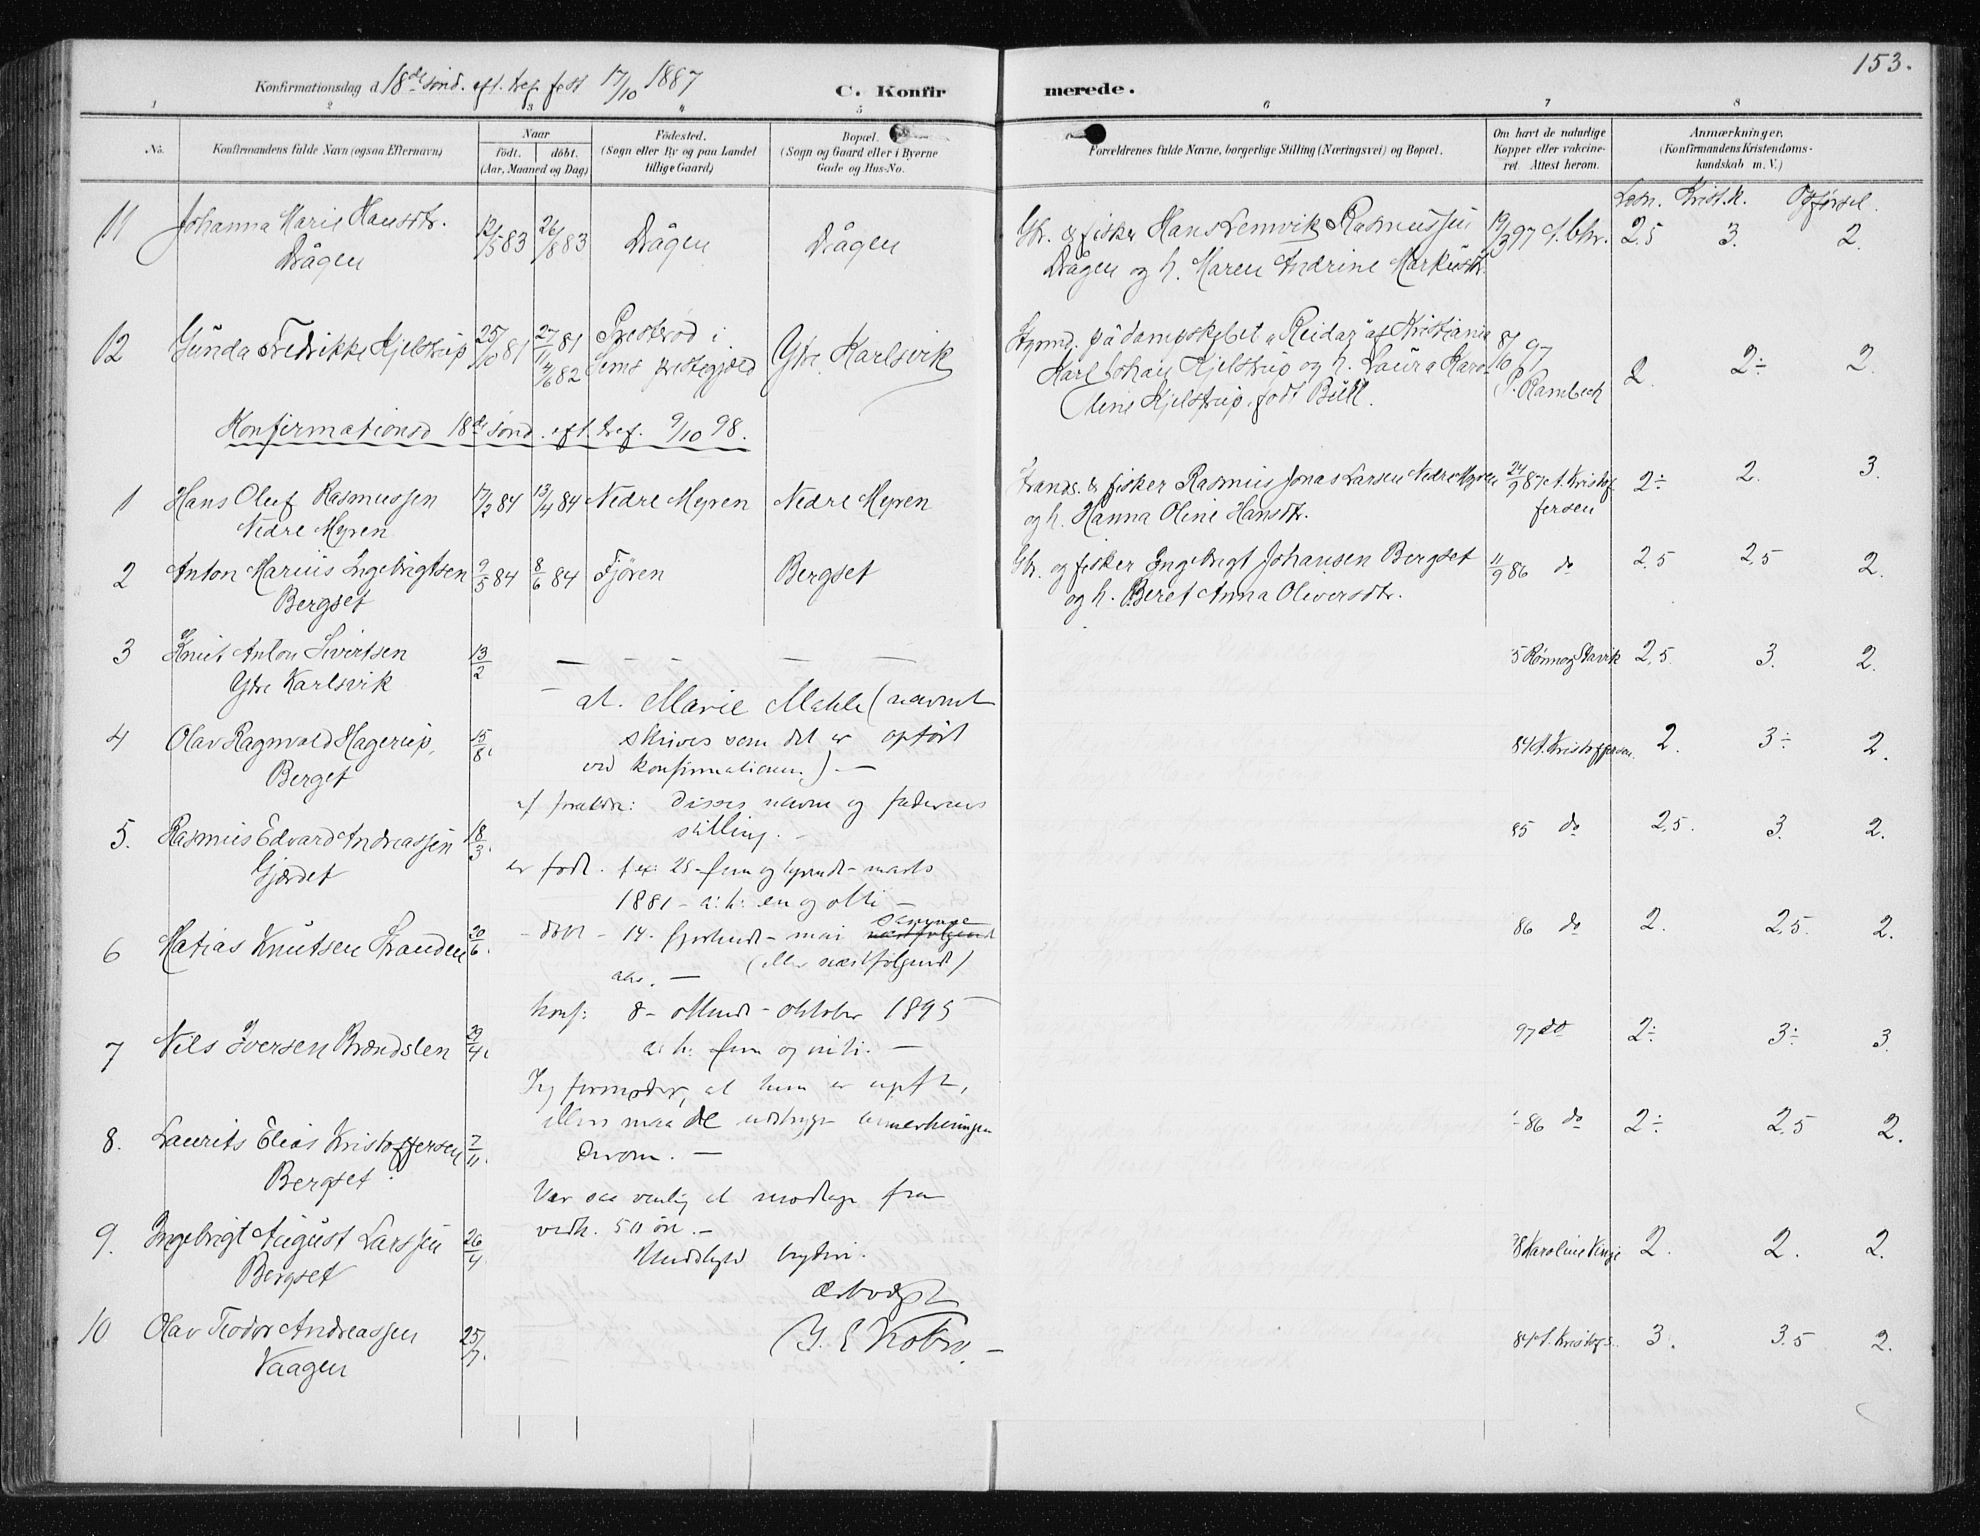 153.
Konfirmationsdag d. 18de sönd. eft. tref. fest 17/10 1887
C. Konfirmerede.
1 2 3 4 5 6 7 8
No.
Konfirmandens fulde Navn (ogsaa Efternavn)
Naar
födt. döbt.
(Aar, Maaned og Dag)
Födested.
(Sogn eller By og paa Landet
tillige Gaard)
Bopæl.
(Sogn og Gaard eller i Byerne
Gade og Hus-No.
Forældrenes fulde Navne, borgerlige Stilling (Næringsvei) og Bopæl.
Om havt de naturlige
Kopper eller vakcine-
ret. Attest herom.
Anmærkninger.
(Konfirmandens Kristendoms-
kundskab m. V.)
Lesn. Krist.k. Opförsel.
11 Johanna Marie Hansdtr. 12/5 83 26/8 83 Drågen Drågen Gbr. & fisker Hans Lemvik Rasmussen 19/3 97 A. Chr. 2,5 3. 2.
Drågen
Drågen og h. Maren Andrine Markusdtr.
12 Gunda Fredrikke Kjelstrup 25/10 81 27/11 81 Presterød i Ytre Karlsvik Styrmd. på dampskibet "Reidar" af Kristiania 8/10 97 2. 2÷ 2.
82 Sems prestegjæld
Karl Johan Kjelstrup og h. Laura Karo-
line Kjelstrup, født Bull. P. Rambech
Konfirmationsd 18de sönd. eft. tref. 9/10 98.
1 Hans Oluf Rasmussen 17/2 84 13/4 84 Nedre Myren Nedre Myren Strands. & fisker Rasmus Jonas Larsen Nedre Myren 24/9 87 A. Kristof 2÷ 2. 3.
Nedre Myren
og h. Hanna Oline Hansdtr. fersen
2 Anton Marius Ingebrigtsen 9/5 84 8/6 84 Fjören Bergset Gbr. og fisker Ingebrigt Johansen Bergset 11/9 86 do 2,5 2,5 2.
Bergset
og h. Beret Anna Oliversdtr.
3 Knut Anton Sivertsen 13/2 5 Rønnog Stavik 2,5. 3. 2.
Ytre Karlsvik
4 Olav Ragnvald Hagerup, 15/8. 84 A. Kristoffersen. 2. 3÷ 2.
Berget
5. Rasmus Edvard Andreassen 18/3. 85 do 2,5. 3. 2.
Gjærdet
6 Matias Knutsen Stranden 20/6. 86 do 2. 2,5. 2.
7 Nils Iversen Brændslen 29/4. 97 do 2÷ 3÷ 3.
8. Laurits Elias Kristoffersen 7/11. 86 do 2÷ 2,5 2.
Bergset
9. Ingebrigt August Larssen 26/4 8 Karoline Vinge 2. 2. 2.
Bergset
10 Olav Teodor Andreassen 25/7. 84 A. Kristofs. 3. 3.5 2.
Vaagen
— — — — —
— at. Marie Mahle (navnet
skrives som det er opført
ved konfirmationen.) —
af forældre: disses navne og faderens
stilling. —
er født. f ex: 25 - fem og tyvende - marts
1881 - a: h: en og otti —
- døbt - 14. fjortende - mai samme
(eller næstfølgende)
aar. —
konf: 8 - ottende - oktober 1895 —
a: h: fem og niti. —
Jeg formoder, at hun er upft,
ellers maa de udtryge anmerkningen
derom. —
Vær saa venlig at modtage fra
vedk. 50 øre. —
Ærbødigst
J. E. Kobro. —